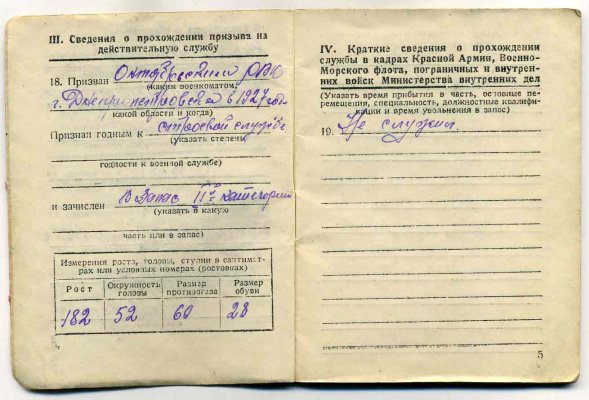 III. Сведения о прохождении призыва на
действительную службу
18. Призван Октябрьским РВК
(каким военкоматом,
г. Днепропетровска в 1927 году
какой области и когда)
Признан годным к строевой службе
(указать степень
годности к военной службе)
и зачислен В запас II-й категории
(указать в какую
часть или в запас)
Измерения роста, головы, ступни в сантимет-
рах или условных номерах (ростовках)
Рост Окружность головы Размер противогаза Размер обуви
182 52 60 28
IV. Краткие сведения о прохождении
службы в кадрах Красной Армии, Военно-
Морского флота, пограничных и внутрен-
них войск Министерства внутренних дел
(Указать время прибытия в часть, основные пе-
ремещения, специальность, должностные квалифи-
кации и время увольнения в запас)
19. Не служил.
5